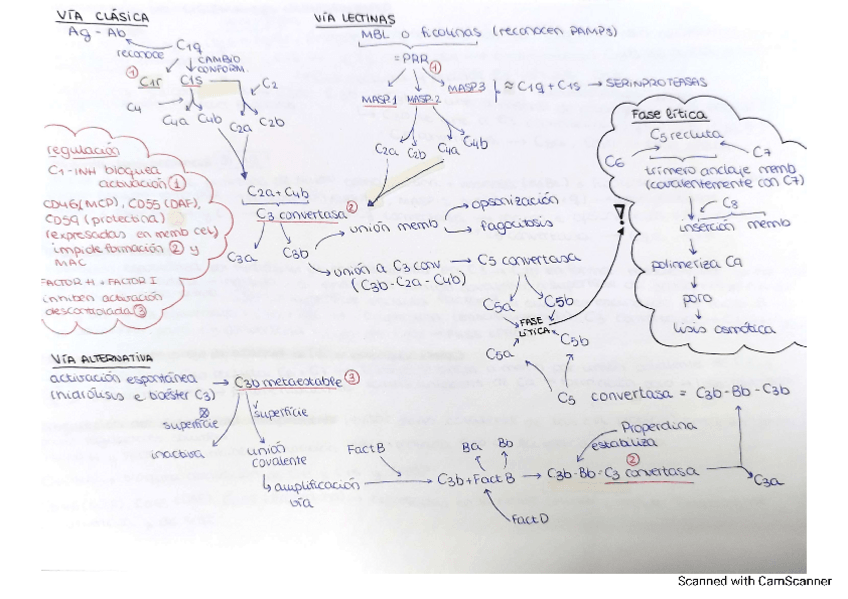 VÍA CLÁSICA
Ag - Ab
reconoce
C1q
CAMBIO
CONFORM.
① C1r C1s
C2
C4
C4a C4b
C2a C2b
VÍA LECTINAS
MBL o ficolinas (reconocen PAMPs)
= PRR ①
MASP1 MASP2 MASP3 ≈ C1q + C1s → SERINPROTEASAS
C2a C2b C4a C4b
C2a + C4b
C3 convertasa ②
C3a C3b
unión memb
opsonización
fagocitosis
unión a C3 conv → C5 convertasa
(C3b-C2a-C4b)
C5a C5b
FASE
LÍTICA
C5a C5b
Fase lítica
C5 recluta
C6 C7
trimero anclaje memb
(covalentemente con C7)
C8
inserción memb
polimeriza C9
poro
lisis osmótica
regulación
C1-INH bloquea
activación ①
CD46 (MCP), CD55 (DAF),
CD59 (protectina)
(expresadas en memb cel)
impide formación ② y
MAC
FACTOR H + FACTOR I
inhiben activación
③
VÍA ALTERNATIVA
activación espontánea → C3b metaestable ③
(hidrólisis e C3)
superficie
inactiva
superficie
unión
covalente
amplificación
vía
Fact B
C3b + Fact B
Ba Bb
Fact D
C3b-Bb = C3 convertasa
②
Properdina
estabiliza
C5 convertasa = C3b-Bb-C3b
C3a
Scanned with CamScanner